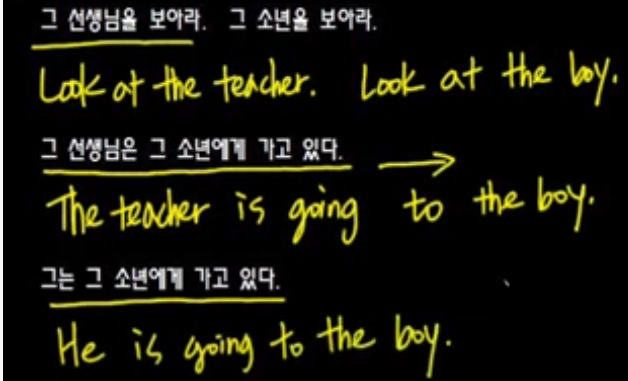 그 선생님을 보아라. 그 소년을 보아라.
Look at the teacher. Look at the boy.
그 선생님은 그 소년에게 가고 있다.
The teacher is going to the boy.
그는 그 소년에게 가고 있다.
He is going to the boy.